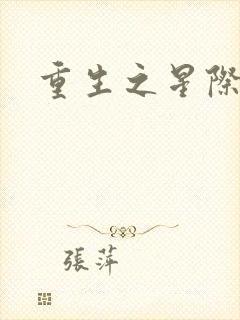 重生之星際
張萍